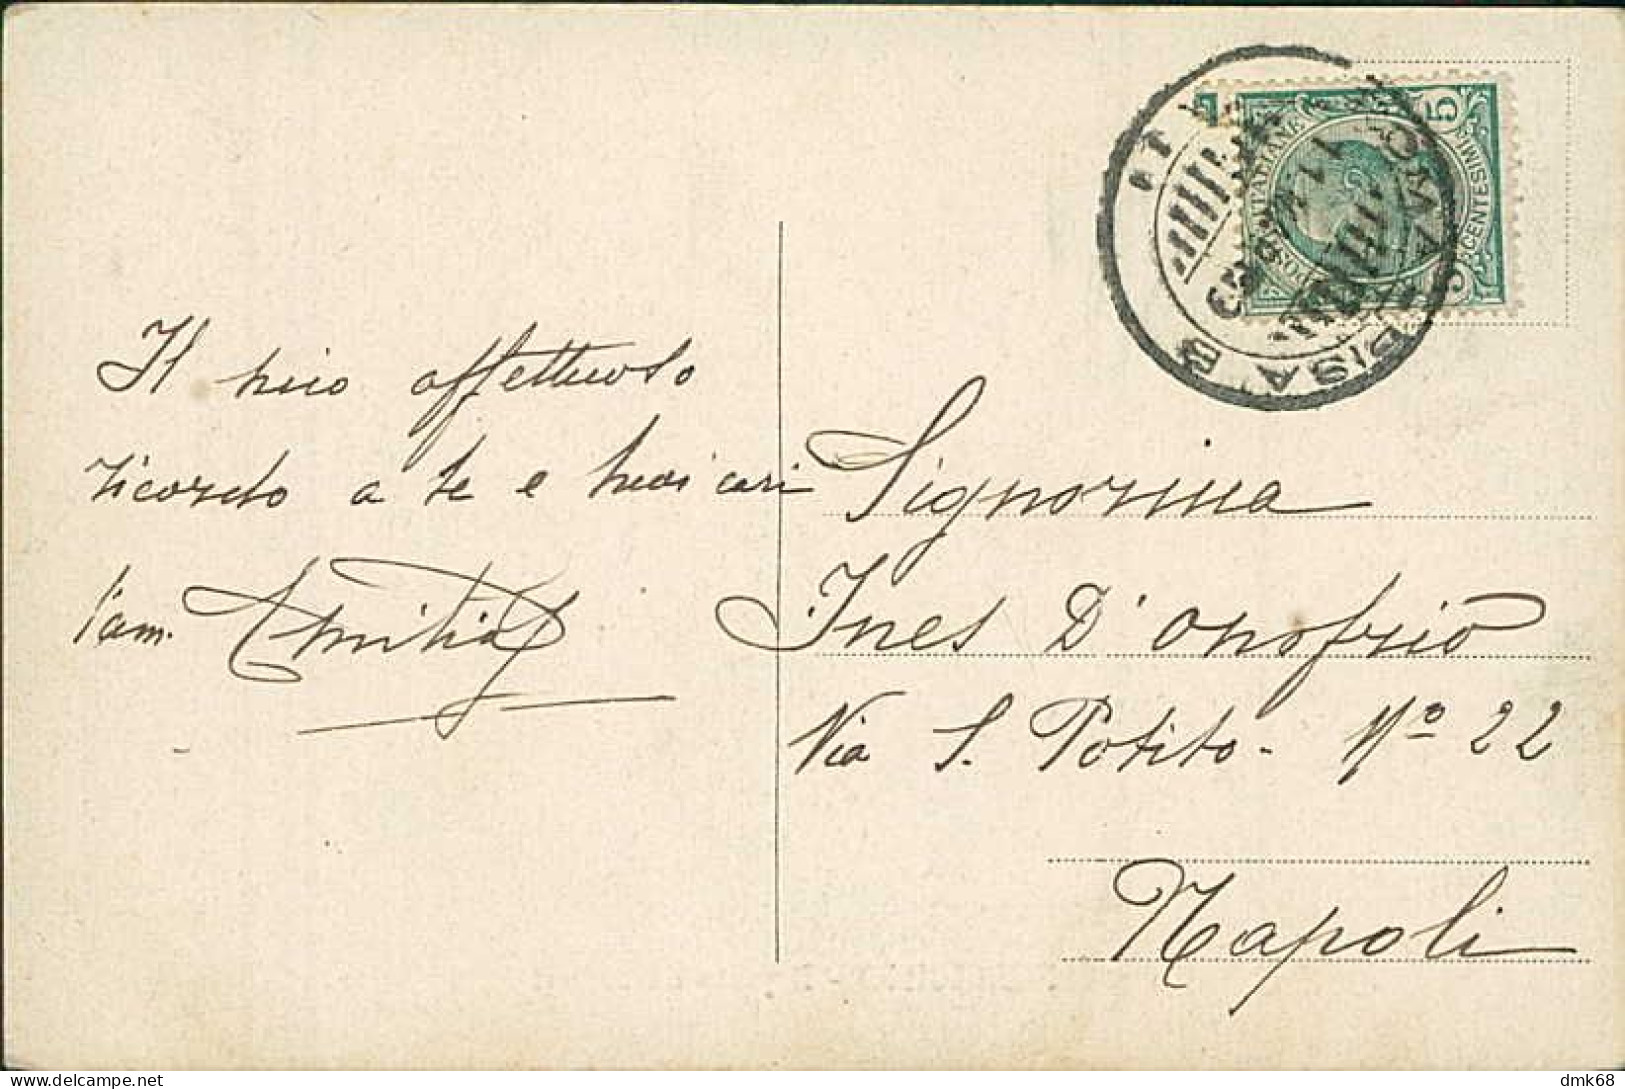 Il mio affettuoso
ricordo a te e tuoi cari
l'am. Emilia
Signorina
Ines D'Onofrio
Via S. Potito - Nº 22
Napoli
POSTE ITALIANE
5 CENTESIMI 5
ROMA PISA B